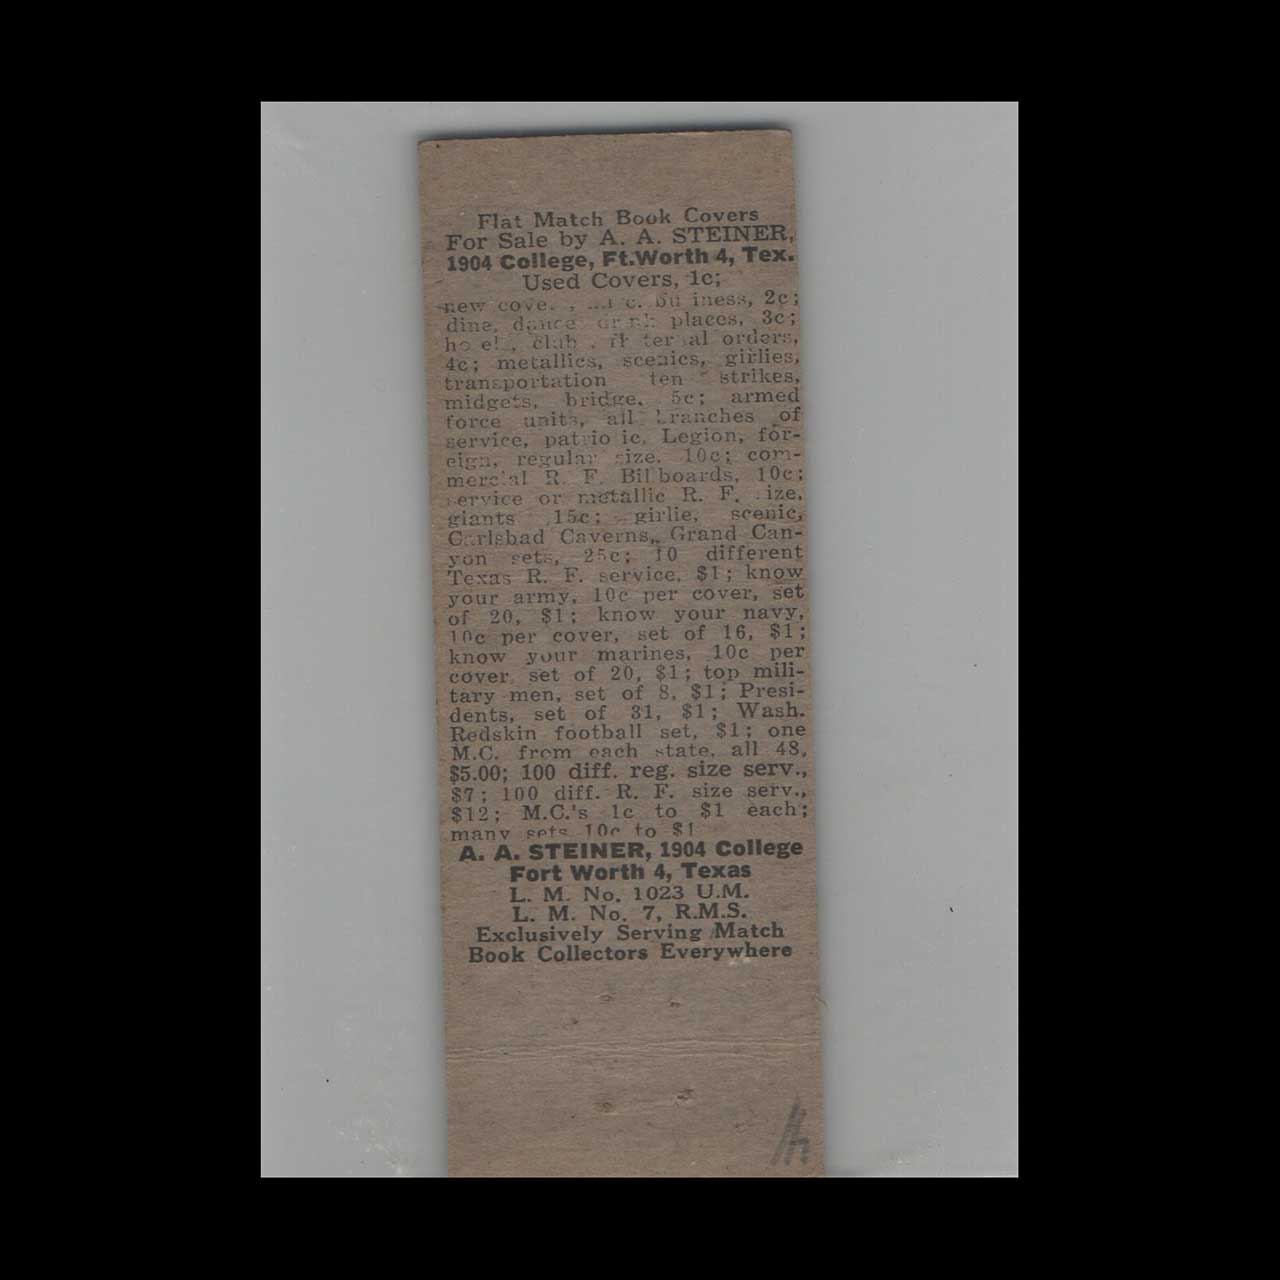 Flat Match Book Covers
For Sale by A. A. STEINER,
1904 College, Ft.Worth 4, Tex.
Used Covers, 1c;
new 2c;
dine, dance places, 3c;
orders,
4c; metallics, scenics, girlies,
transportation ten strikes,
midgets, bridge, 5c; armed
force units, all branches of
service, patriotic, Legion, for-
eign, regular size, 10c; com-
mercial R. F. Billboards, 10c;
service or metallic R. F. size,
giants 15c; girlie, scenic,
Carlsbad Caverns, Grand Can-
yon sets, 25c; 10 different
Texas R. F. service, $1; know
your army, 10c per cover, set
of 20, $1; know your navy,
10c per cover, set of 16, $1;
know your marines, 10c per
cover, set of 20, $1; top mili-
tary men, set of 8, $1; Presi-
dents, set of 31, $1; Wash.
Redskin football set, $1; one
M.C. from each state, all 48,
$5.00; 100 diff. reg. size serv.,
$7; 100 diff. R. F. size serv.,
$12; M.C.'s 1c to $1 each;
many sets 10c to $1
A. A. STEINER, 1904 College
Fort Worth 4, Texas
L. M. No. 1023 U.M.
L. M. No. 7, R.M.S.
Exclusively Serving Match
Book Collectors Everywhere